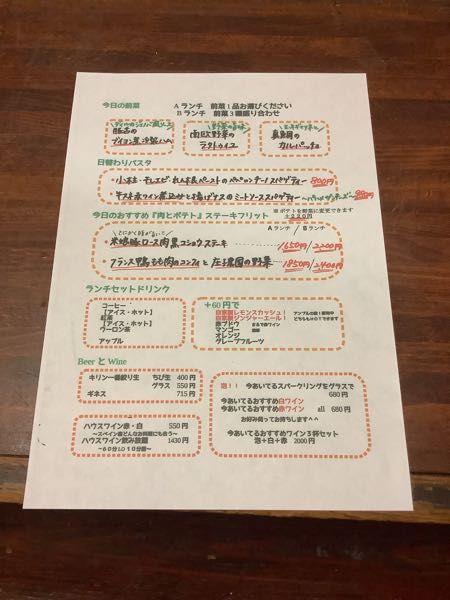 今日の前菜
Aランチ 前菜1品お選びください
Bランチ 前菜3種盛り合わせ
豚舌の
南欧野菜の
ラタトゥイユ
真鯛の
カルパッチョ
日替わりパスタ
スパゲティー 800円
ミートソーススパゲティー
今日のおすすめ『肉とポテト』ステーキフリット
※ポテトを野菜に変更できます
+220円
Aランチ / Bランチ
豚ロース肉 黒コショウステーキ 1650円/2200円
フランス鴨もも肉のコンフィと 農園の野菜 1850円/2400円
ランチセットドリンク
コーヒー
【アイス・ホット】
紅茶
【アイス・ホット】
ウーロン茶
アップル
+60円で
自家製レモンスカッシュ!
自家製ジンジャーエール!
どちらもHOTでできます
赤ブドウ まるで赤ワイン
マンゴー
オレンジ
グレープフルーツ
Beer と Wine
キリン一番搾り生 ちび生 400円
グラス 550円
ギネス 715円
ハウスワイン赤・白 550円
〜スペイン産どんなお料理にも合う〜
ハウスワイン飲み放題 1430円
〜60分LO10分前〜
泡!! 今あいてるスパークリングをグラスで
680円
今あいてるおすすめ白ワイン
今あいてるおすすめ赤ワイン all 680円
お好み伺ってお持ちします^^
今あいてるおすすめワイン3杯セット
泡+白+赤 2000円